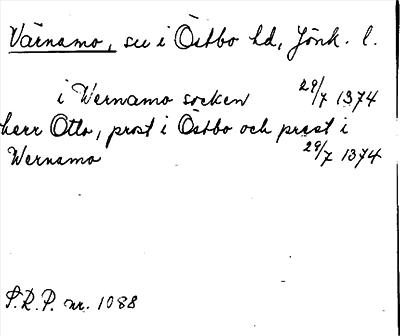 Värnamo, sn i Östbo hd, Jönk. l.
i Wernamo socken 29/7 1374
herr Otto, prost i Östbo och præst i
Wernamo 29/7 1374
S.R.P. nr. 1088